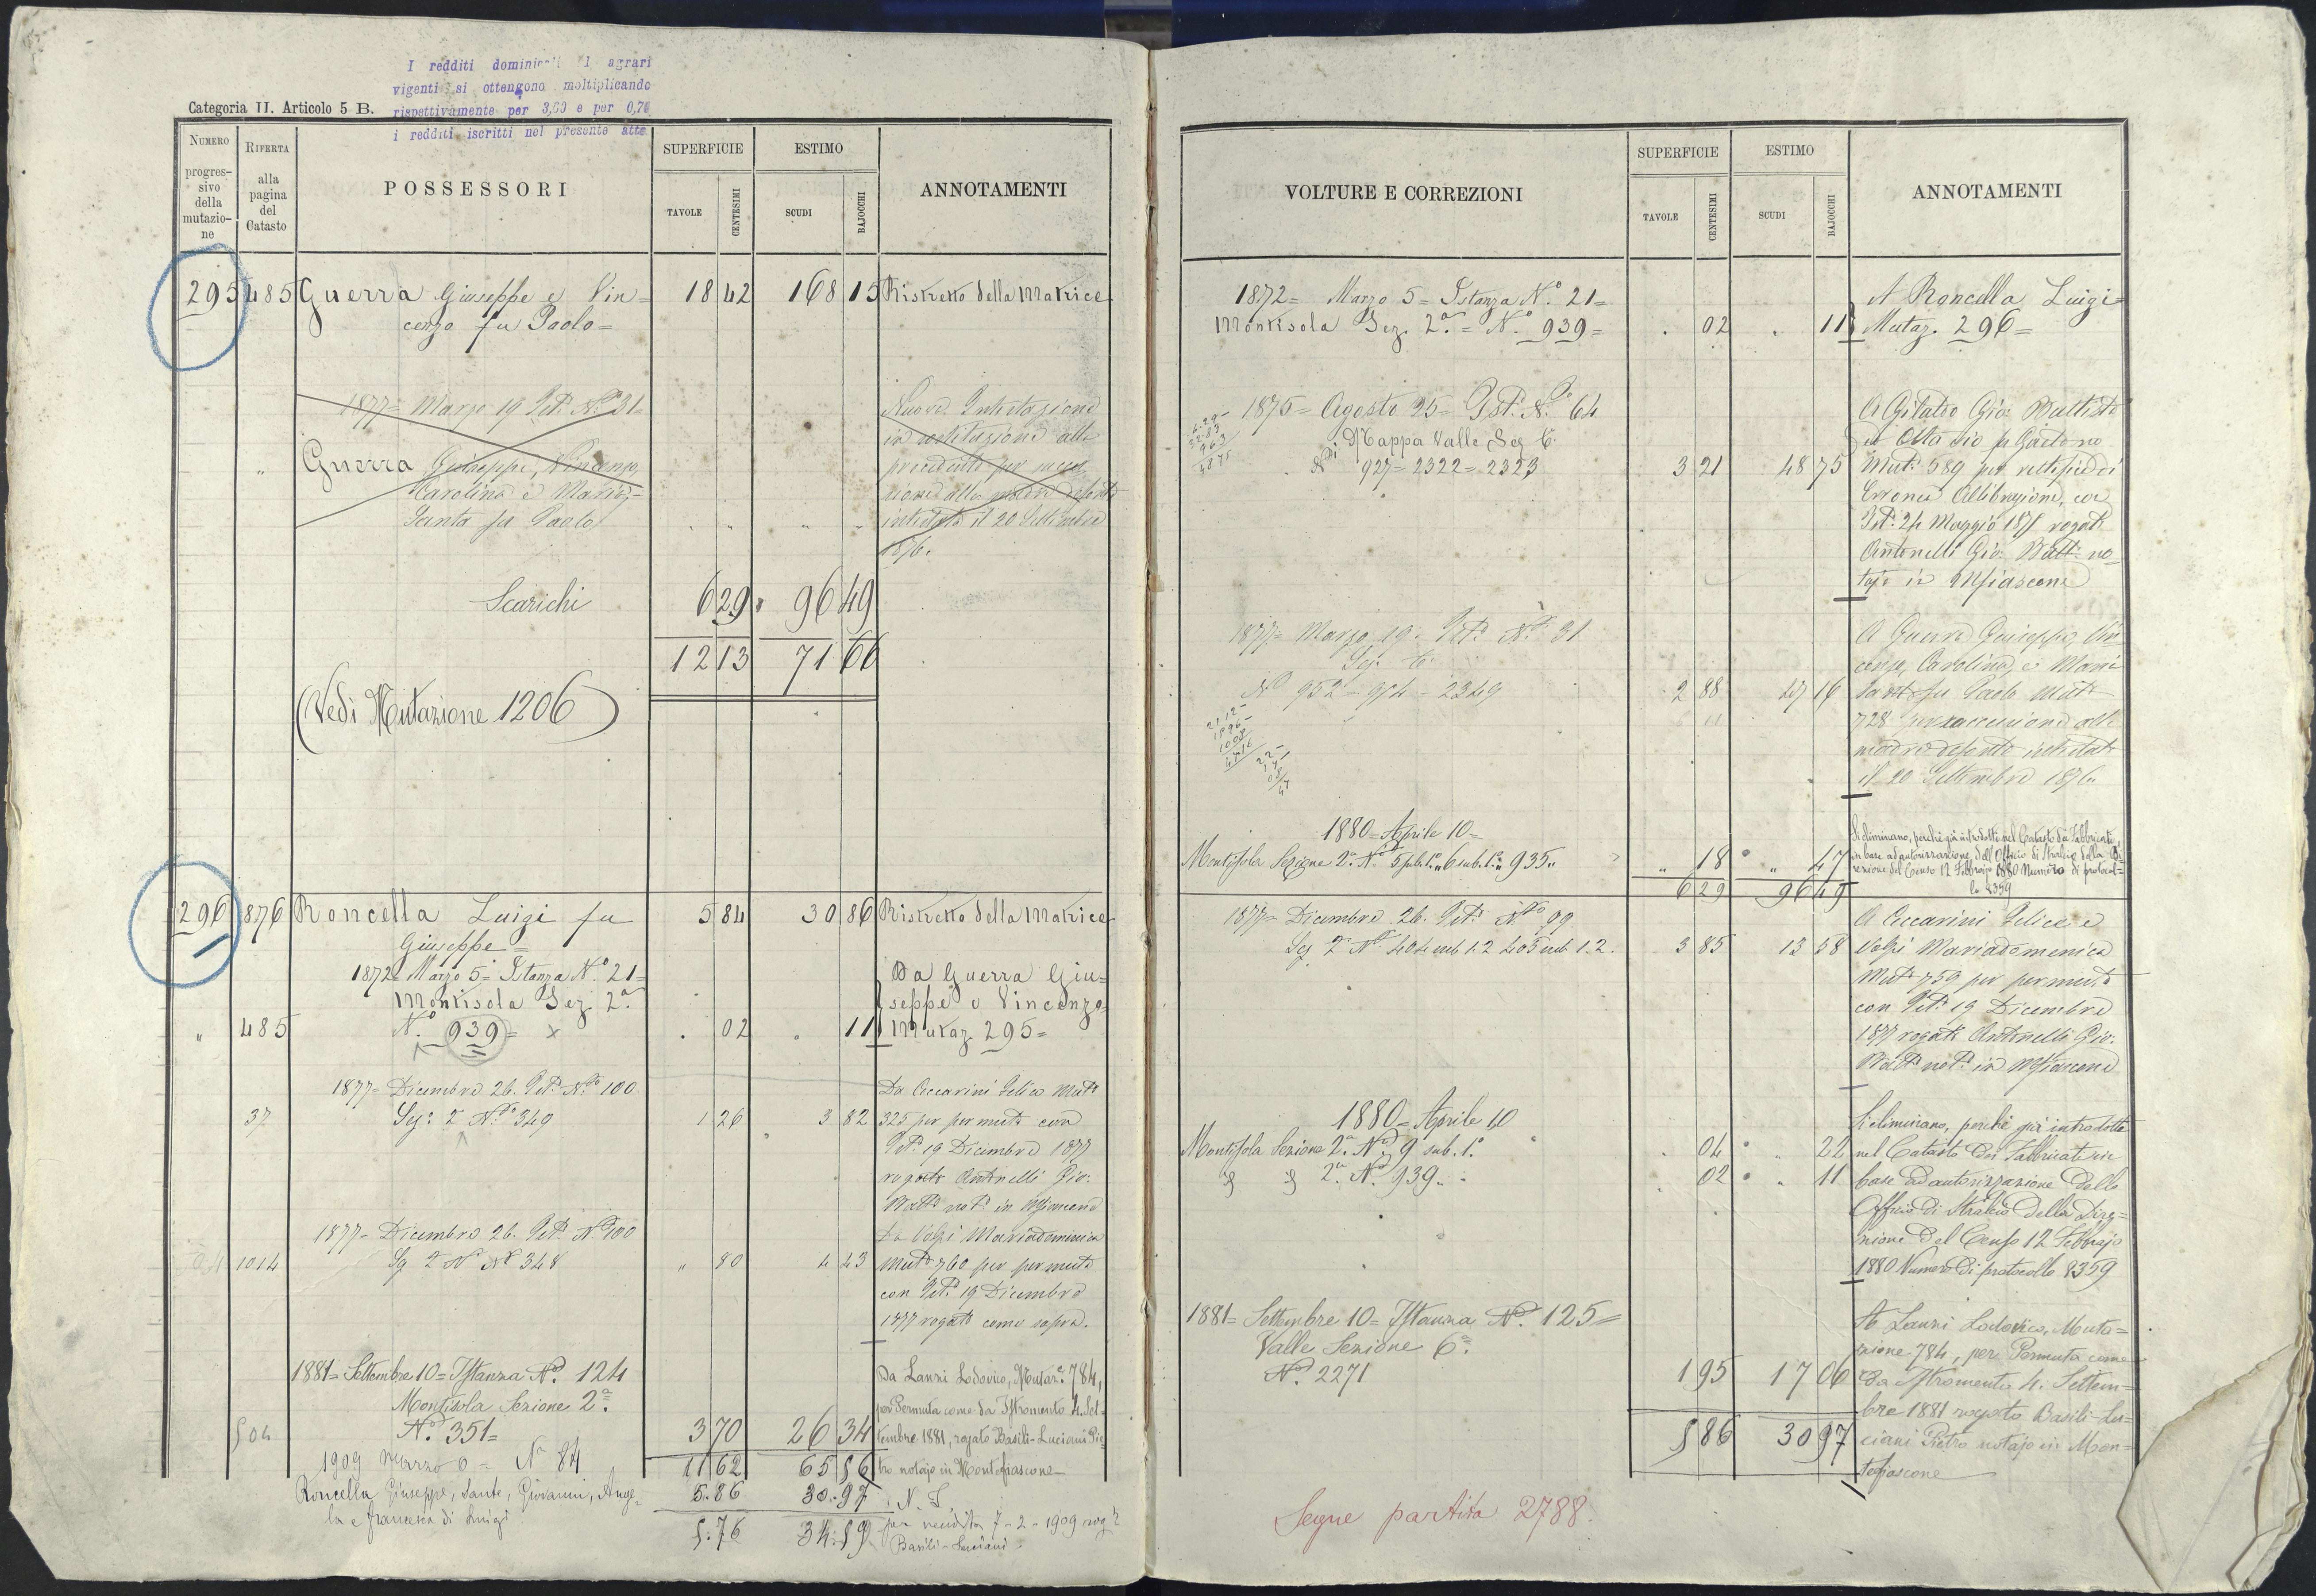 I redditi dominicali agrari
vigenti si ottengono moltiplicando
Categoria II. Articolo 5 B.
rispettivamente per 3,60 e per 0,70
i redditi iscritti nel presente atto
NUMERO
progres-
sivo
della
mutazio-
ne
RIFERTA
alla
pagina
del
Catasto
POSSESSORI
SUPERFICIE
TAVOLE
CENTESIMI
ESTIMO
SCUDI
BAJOCCHI
ANNOTAMENTI
295 485 Guerra Giuseppe e Vin= 18 42 168 15 Ristretto della Matrice
cenzo fu Paolo=
1877= Marzo 19 Ist. N.º 31= Nuova Intestazione
in
" Guerra Giuseppe, Vincenzo, precedente per succes
Carolina e Maria= sione alla madre defonta
Santa fu Paolo " " " " intestata il 20 Settembre
1876.
Scarichi 6 29 96 49
12 13 71 66
(Vedi Mutazione 1206)
296 876 Roncella Luigi fu 5 84 30 86 Ristretto della Matrice
Giuseppe=
1872= Marzo 5= Istanza N.º 21= Da Guerra Giu=
Montisola Sez. 2.ª seppe e Vincenzo
" 485 N.º 939= x . 02 . 11 Mutaz. 295=
1877= Dicembre 26. Ist. N.º 100 Da Ceccarini Felice Mut.
37 Sez: 2 N.º 349 1 26 3 82 325 per permuta con
Ist. 19 Dicembre 1877
rogato Antonelli Gio:
Batt. not. in Mfiascone
1877= Dicembre 26. Ist. N.º 100 Da Volpi Mariadomenica
1014 Sez 2 N.º 348 " 80 4 43 Mut. 760 per permuta
con Ist. 19 Dicembre
1877 rogato come sopra.
1881= Settembre 10= Istanza N.º 124 Da Lanzi Lodovico, Mutaz.e 784,
Montisola Sezione 2.ª per Permuta come da Istromento 4. Set=
504 N.º 351= 3 70 26 34 tembre 1881, rogato Basili-Luciani Pie=
1909 Marzo 6= N 84 11 62 65 56 tro notajo in Montefiascone
Roncella Giuseppe, Sante, Giovanni, Ange= 5.86 30.97 N. I.
la e Francesca di Luigi 5.76 34.59 per vendita 7-2-1909 rog.
Basili-Luciani
VOLTURE E CORREZIONI
SUPERFICIE
TAVOLE
CENTESIMI
ESTIMO
SCUDI
BAJOCCHI
ANNOTAMENTI
1872= Marzo 5= Istanza N.º 21= A Roncella Luigi=
Montisola Sez. 2.ª= N.º 939= . 02 . 11 Mutaz. 296=
1875= Agosto 25= Ist. N.º 64 Gio: Battista
Mappa Valle Sez 6. ed Ottavio fu Gaetano
Ni 927=2322=2323 3 21 48 75 Mut. 589 per rettifica di
Erronea Allibrazione, con
Ist. 24 Maggio 1875 rogato
Antonelli Gio: Batt. no=
tajo in Mfiascone
1877= Marzo 19. Ist. N.º 31 A Guerra Giuseppe, Vin
Sez. 6. cenzo, Carolina, e Maria
Ni 952=954=2349 2 88 47 16 Santa fu Paolo Mut.
728 per successione alla
madre defonta intestata
il 20 Settembre 1876.
1880= Aprile 10= Si eliminano, perchè già introdotti nel Catasto dei Fabbricati
Montisola Sezione 2.ª Ni 5 sub.1.º " 6 sub.1.º " 935 " " 18 " 47 in base ad autorizzazione dell'Officio di Stralcio della Di=
6 29 96 49 rezione del Censo 12 Febbrajo 1880 Numero di protocol=
lo 8359
1877= Dicembre 26. Ist. N.º 99 A Ceccarini Felice e
Sez 2.ª Ni 404 sub 1.2 405 sub 1.2. 3 85 13 58 Volpi Mariadomenica
Mut. 759 per permuta
con Ist. 19 Dicembre
1877 rogato Antonelli Gio:
Batt. not. in Mfiascone
1880= Aprile 10 Si eliminano, perchè già introdotti
Montisola Sezione 2.ª Ni 9 sub.1.º . 04 " 22 nel Catasto dei Fabbricati in
2.ª N.º 939 . . 02 " 11 base ad autorizzazione dello
Officio di Stralcio della Dire=
zione del Censo 12 Febbrajo
1880 Numero di protocollo 8359
1881= Settembre 10= Istanza N.º 125= A Lanzi Lodovico, Muta=
Valle Sezione 6.ª zione 784, per Permuta come
N.º 2271 1 95 17 06 da Istromento 4. Settem=
bre 1881 rogato Basili-Lu=
5 86 30 97 ciani Pietro notajo in Mon=
tefiascone
Segue partita 2788.